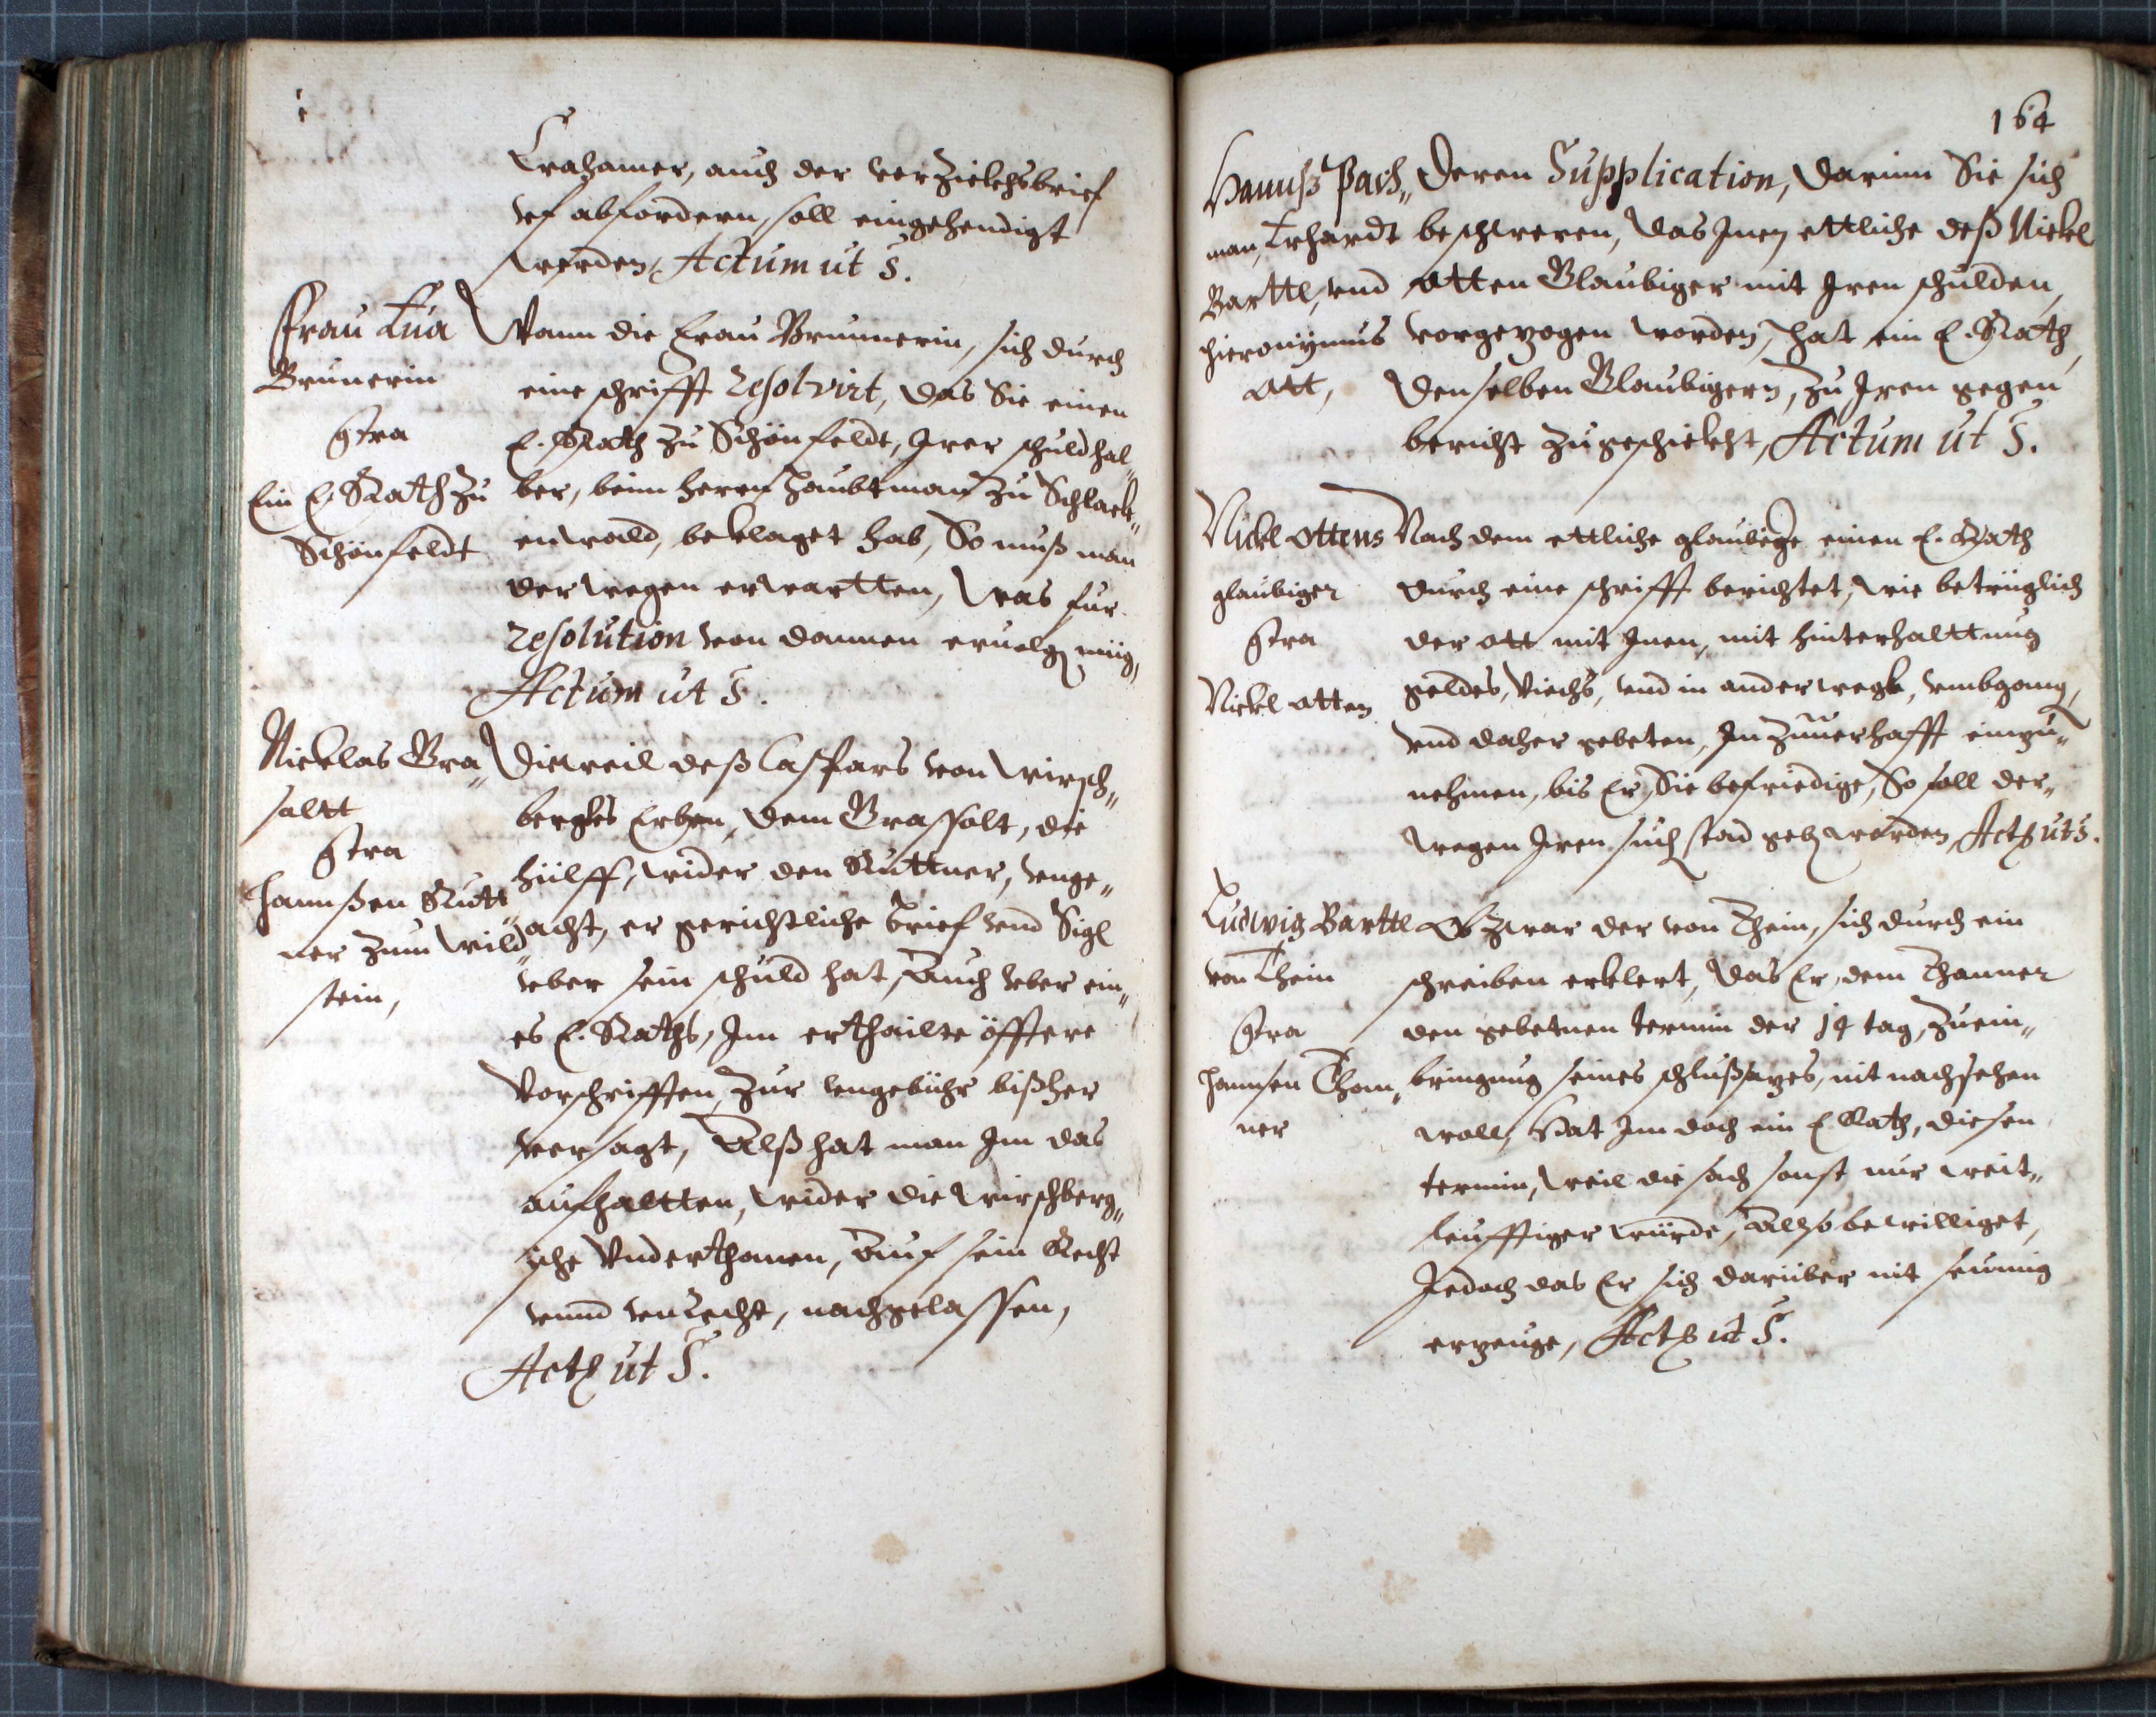 Crahamer, auch der verzieksbrief
vf abfordern, soll eingehendigt
werden, Actum ut s.
Frau Eua
Brunerin
Contra
Ein E. Rath zu
Schönfeldt
Wann die Frau Brunnerin, sich durch
eine schrifft resolvirt, das Sie einen
E. Rath zu Schönfeldt, Irer schuld hal„
ber, beim Herrn Haubtman zu Schlack„
enwald, beklaget hab, So muß man
derwegen erwartten, was fur
resolution von dannen eruolgen müg,
Actum ut s.
Nicklas Gra„
saltt
Contra
Hannßen Rutt„
ner zum Wild„
stein,
Dieweil deß Caspars von Wirsch„
bergks Erben, dem Grassalt, die
hülff, wider den Ruttner, vnge„
acht, er gerichtliche brief vnd Sigl
veber sein schuld hat, Auch veber ein„
es E. Raths, Im erthailte öfftere
Vorschrifften, zur vngebühr bißher
versagt, Alß hat man Im das
aufhaltten, wider die Wirschberg„
ische Vnderthanen, Auf sein Recht
vnnd vnrecht, nachgelassen,
Actum ut S.
164
Hannß Bach„
man, Erhardt
Barttl, vnd
Hieronymus
Ott,
Deren Supplication, darinn Sie sich
beschweren, das Inen ettliche deß Nickl
Otten Glaubiger mit Iren schulden,
vorgezogen worden, hat ein E. Rath,
denselben Glaubigern, zu Iren gegen
bericht zugeschickht, Actum ut S.
Nickl Ottens
glaubiger
Contra
Nickl Otten
Nach dem ettliche glaubige einen E. Rath
durch eine schrifft berichtet, wie betrüglich
der Ott mit Inen, mit hinterhalttung
geldes, Viechs, vnd in ander wege, vmbgang,
vnd daher gebeten, In zuuerhafft einzu„
nehmen, bis Er, Sie befriedige, So soll der„
wegen Iren such stad geben werden, Actum ut s.
Ludwig Barttl
von Thein
Contra
Hannsen Than„
ner
Ob zwar der von Thein, sich durch ein
schreiben erklert, das Er, dem Thanner
den gebetnen termin der 14 tag, zu ein„
bringung seines schlußsazes, nit nachsehen
woll, Hat Im doch ein E. Rath, diesen
termin, weil die sach sonst nur weit„
leufftiger würde, Also bewilliget,
Jedoch das Er sich darüber nit seumig
erzeuge, Actum ut S.